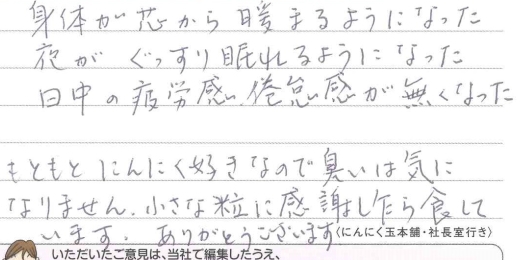 身体が芯から暖まるようになった
夜がぐっすり眠れるようになった
日中の疲労感、倦怠感が無くなった
もともとにんにく好きなので臭いは気に
なりません。小さな粒に感謝し乍ら食して
います。ありがとうございます
(にんにく玉本舗・社長室行き)
いただいたご意見は、当社で編集したうえ、